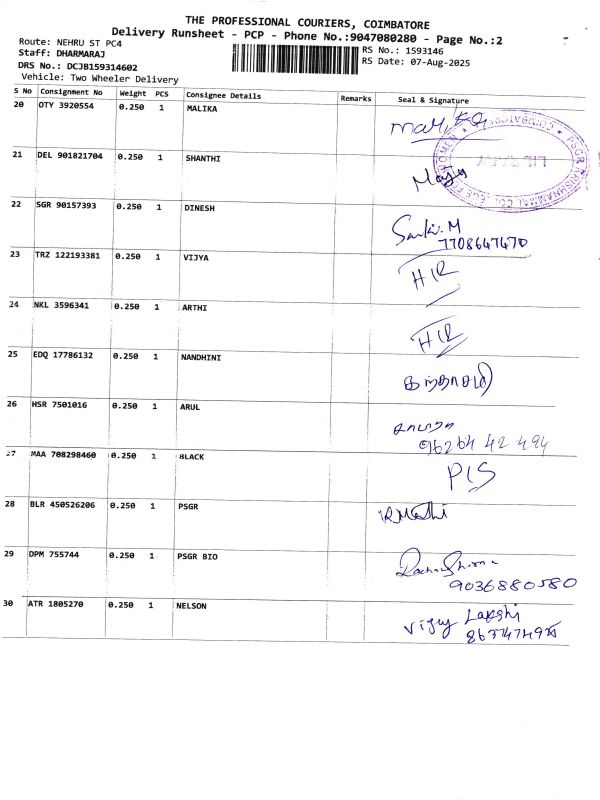 THE PROFESSIONAL COURIERS, COIMBATORE
Delivery Runsheet - PCP - Phone No.:9047080280 - Page No.:2
Route: NEHRU ST PC4
Staff: DHARMARAJ
DRS No.: DCJB159314602
Vehicle: Two Wheeler Delivery
RS No.: 1593146
RS Date: 07-Aug-2025
S No Consignment No Weight PCS Consignee Details Remarks Seal & Signature
20 OTY 3920554 0.250 1 MALIKA
21 DEL 901821704 0.250 1 SHANTHI
22 SGR 90157393 0.250 1 DINESH
7708647470
23 TRZ 122193381 0.250 1 VIJYA H/R
24 NKL 3596341 0.250 1 ARTHI H/R
25 EDQ 17786132 0.250 1 NANDHINI
26 HSR 7501016 0.250 1 ARUL
96264 42 494
27 MAA 708298460 0.250 1 BLACK P/S
28 BLR 450526206 0.250 1 PSGR
29 DPM 755744 0.250 1 PSGR BIO
9036880580
30 ATR 1805270 0.250 1 NELSON Vijay Lakshi